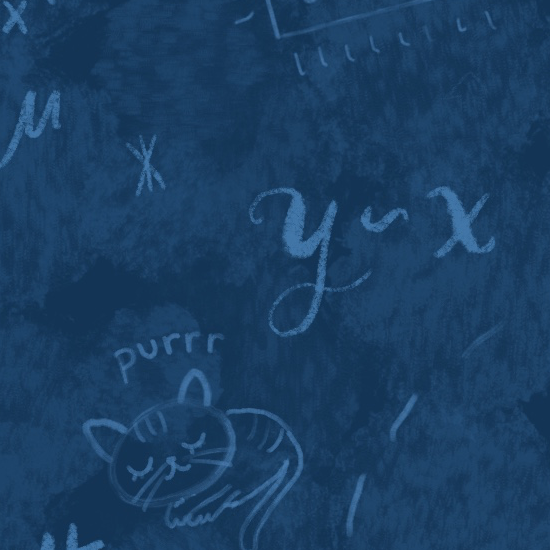 x
μ
y ~ x
purrr